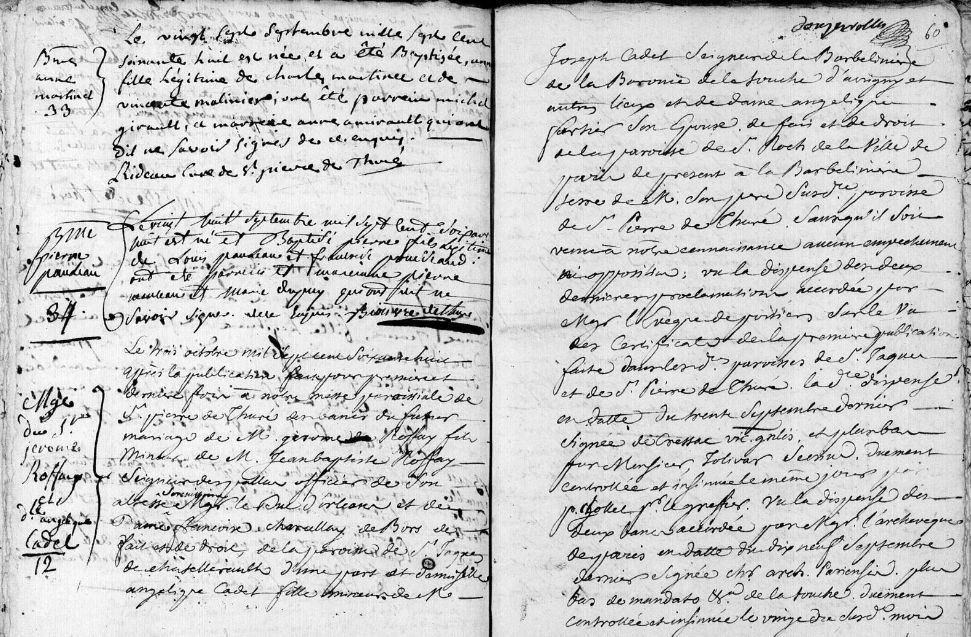 Bme
anne
martinet
33
Le vingt sept Septembre mille Sept Cent
soixante huit est née, et a été Baptisée, anne
fille légitime de charles martinet et de
vincente molinier; ont été parrein michel
girault, et marreine anne amirault qui ont
dit ne savoir signer de ce enquis.
Rideau Curé de St. pierre de Thuré
Bme
pierre
pauleau
34
Le vint huit septembre mil sept cent soixante
huit est né et Baptisé pierre fils légitime
de Louis et
ont été parrein et maraine pierre
et Marie Dupuy qui ont dit ne
savoir signer de ce enquis. de Thuré
Mge
du Sr
jerome
Roffay
et
de
d. angelique
Cadet
12
Le trois octobre mil sept cent soixante huit
après la publication faite pour premiere et
derniere fois à notre messe paroissiale de
St. pierre de Thuré des bancs du futur
mariage de M. gerome de Roffay fils
Mineur de M. Jean baptiste Roffay
Seigneur des officier de Son
altesse Serenissime Mgr. le Duc d'orleans et de
Dame francoise de Bors de
fait et de droit, de la paroisse de St. Jaques
de chatellerault d'une part et damoiselle
angélique Cadet fille mineure de Me
60
Joseph Cadet Seigneur de la Barbeliniere
de la Baronie de la touche d'avrigny et
autres lieux et de dame angelique
fortier Son Epouse, de fait et de droit
de la paroisse de St. Roch de la Ville de
paris de present à la Barbeliniere
terre de M. Son pere Susde. paroisse
de St. Pierre de Thuré, Sans qu'il soit
venu à notre connaissance aucun empechement
ni opposition; vu la dispense des deux
dernieres proclamations accordée par
Mgr l'Eveque de poitiers Sur le Vu
des Certificats de la premiere publication
faite dans les ds. paroisses de St. Jaques
et de St. Pierre de Thuré. la de. dispense
en datte du trente Septembre dernier
signée de Cressac vic. gnlis, et plus bas
par Monsieur, duement
controllée et insinuée le même jour par
p. le greffier. Vu la dispense des
deux bans accordée par Mgr. l'archeveque
de paris en datte du dix neuf Septembre
dernier signée chr. arch. Parisensis, plus
bas de mandato &a. de la touche, duement
controllée et insinuée le vingt du Susd. mois